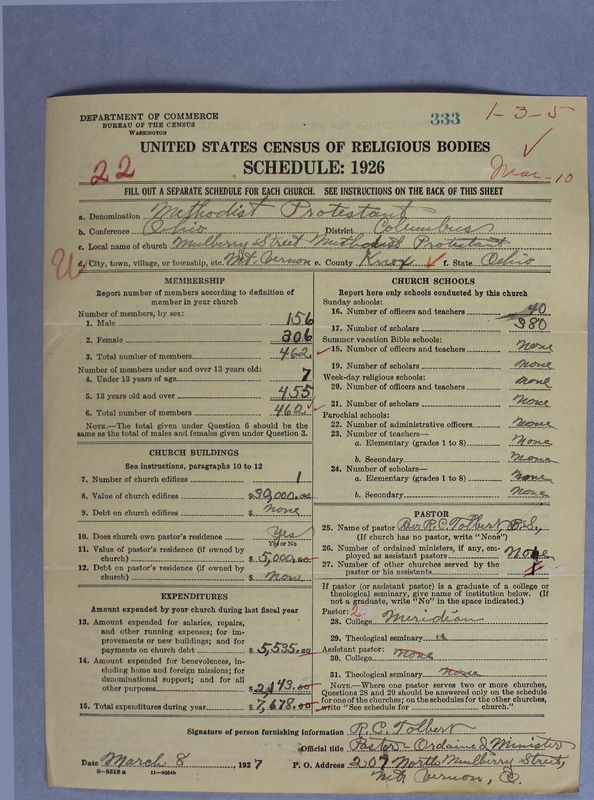 DEPARTMENT OF COMMERCE
BUREAU OF THE CENSUS
WASHINGTON
333
1-3-5
UNITED STATES CENSUS OF RELIGIOUS BODIES
22
SCHEDULE: 1926
Mar-10
FILL OUT A SEPARATE SCHEDULE FOR EACH CHURCH. SEE INSTRUCTIONS ON THE BACK OF THIS SHEET
a. Denomination Methodist Protestant
b. Conference Ohio District Columbus
c. Local name of church Mulberry Street Methodist Protestant
U
d. City, town, village, or township, etc. Mt. Vernon e. County Knox f. State Ohio
MEMBERSHIP
Report number of members according to definition of member in your church
Number of members, by sex:
1. Male 156
2. Female 306
3. Total number of members 462
Number of members under and over 13 years old:
4. Under 13 years of age 7
5. 13 years old and over 455
6. Total number of members 462
NOTE.—The total given under Question 6 should be the same as the total of males and females given under Question 3.
CHURCH BUILDINGS
See instructions, paragraphs 10 to 12
7. Number of church edifices 1
8. Value of church edifices $30,000.00
9. Debt on church edifices $ None
10. Does church own pastor's residence? Yes
Yes or No
11. Value of pastor's residence (if owned by church) $5,000.00
12. Debt on pastor's residence (if owned by church) $ None
EXPENDITURES
Amount expended by your church during last fiscal year
13. Amount expended for salaries, repairs, and other running expenses; for improvements or new building; and for payments on church debt $5,535.00
14. Amount expended for benevolences, including home and foreign missions; for denominational support; and for all other purposes $2,143.00
15. Total expenditures during year $7,678.00
CHURCH SCHOOLS
Report here only schools conducted by this church
Sunday schools:
16. Number of officers and teachers 40
17. Number of scholars 380
Summer vacation Bible schools:
18. Number of officers and teachers None
19. Number of scholars None
Week-day religious schools:
20. Number of officers and teachers None
21. Number of scholars None
Parochial schools:
22. Number of administrative officers None
23. Number of teachers—
a. Elementary (grades 1 to 8) None
b. Secondary None
24. Number of scholars—
a. Elementary (grades 1 to 8) None
b. Secondary None
PASTOR
25. Name of pastor Rev. R.C. Tolbert, B.S.,
(If church has no pastor, write "None")
26. Number of ordained ministers, if any, employed as assistant pastors None
27. Number of other churches served by the pastor or his assistants
If pastor (or assistant pastor) is a graduate of a college or theological seminary, give name of institution below. (If not a graduate, write "No" in the space indicated.)
Pastor: 2
28. College Meridian
29. Theological seminary "
Assistant pastor:
30. College None
31. Theological seminary None
NOTE.—Where one pastor serves two or more churches, Questions 28 and 29 should be answered only on the schedule for one of the churches; on the schedules for the other churches, write "See schedule for church."
Signature of person furnishing information R.C. Tolbert
Official title Pastor - Ordained Minister
Date March 8, 1927 P. O. Address 207 North Mulberry Street,
9—5316a 11—9024b Mt. Vernon, O.